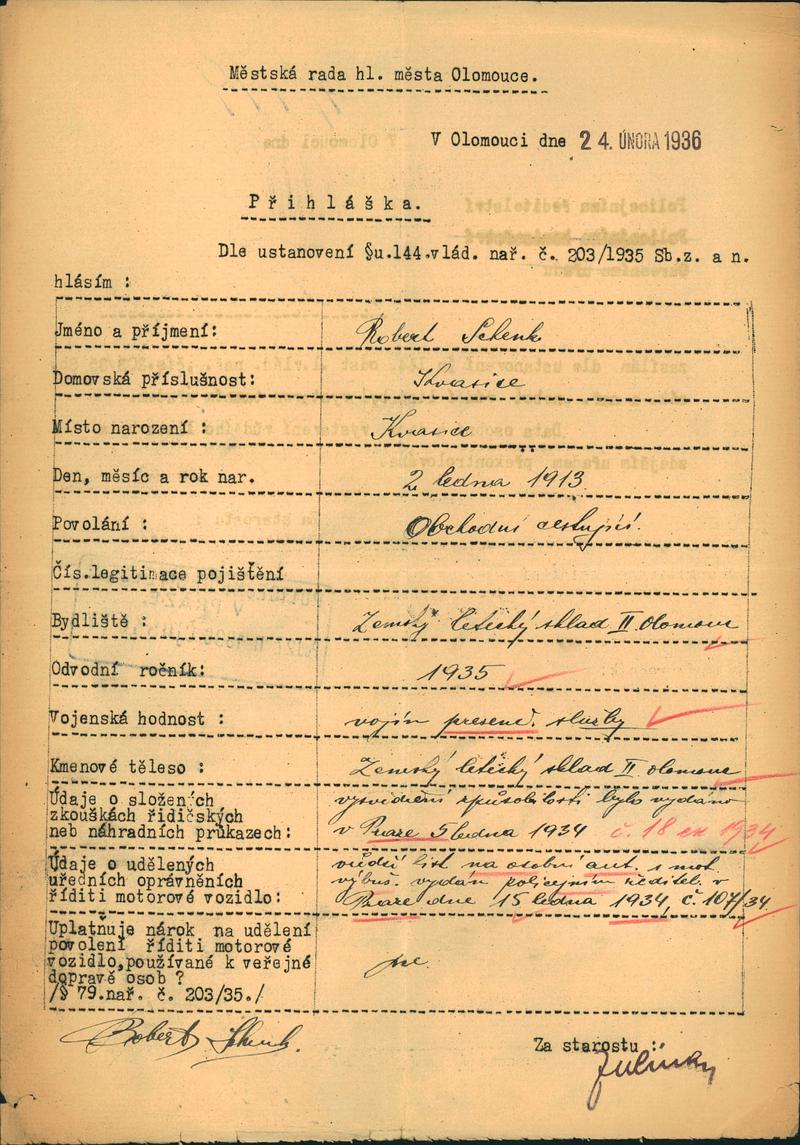 Městská rada hl. města Olomouce.
V Olomouci dne 24. ÚNORA 1936
Přihláška.
Dle ustanovení §u.144.vlád. nař. č. 203/1935 Sb.z. a n.
hlásím :
Jméno a příjmení: Robert Schenk
Domovská příslušnost: Kvasice
Místo narození : Kvasice
Den, měsíc a rok nar. 2 ledna 1913.
Povolání : Obchodní cestující.
Čís.legitimace pojištění
Bydliště : Zemský letecký sklad II Olomouc
Odvodní ročník: 1935
Vojenská hodnost : vojín presenč. služby
Kmenové těleso : Zemský letecký sklad II Olomouc
Údaje o složených vysvědčení způsobilosti bylo vydáno
zkouškách řidičských
neb náhradních průkazech: v Praze 5 ledna 1934 č. 18 ex 1934
Údaje o udělených vůdčí list na osobní aut. s mot.
uředních oprávněních výbuš. vydán policejním ředitel. v
říditi motorové vozidlo: Praze dne 15 ledna 1934, č. 107/34.
Uplatňuje nárok na udělení
povolení říditi motorové
vozidlo,používané k veřejné ne.
dopravě osob ?
/§ 79.nař. č. 203/35./
Robert Schenk.
Za starostu :